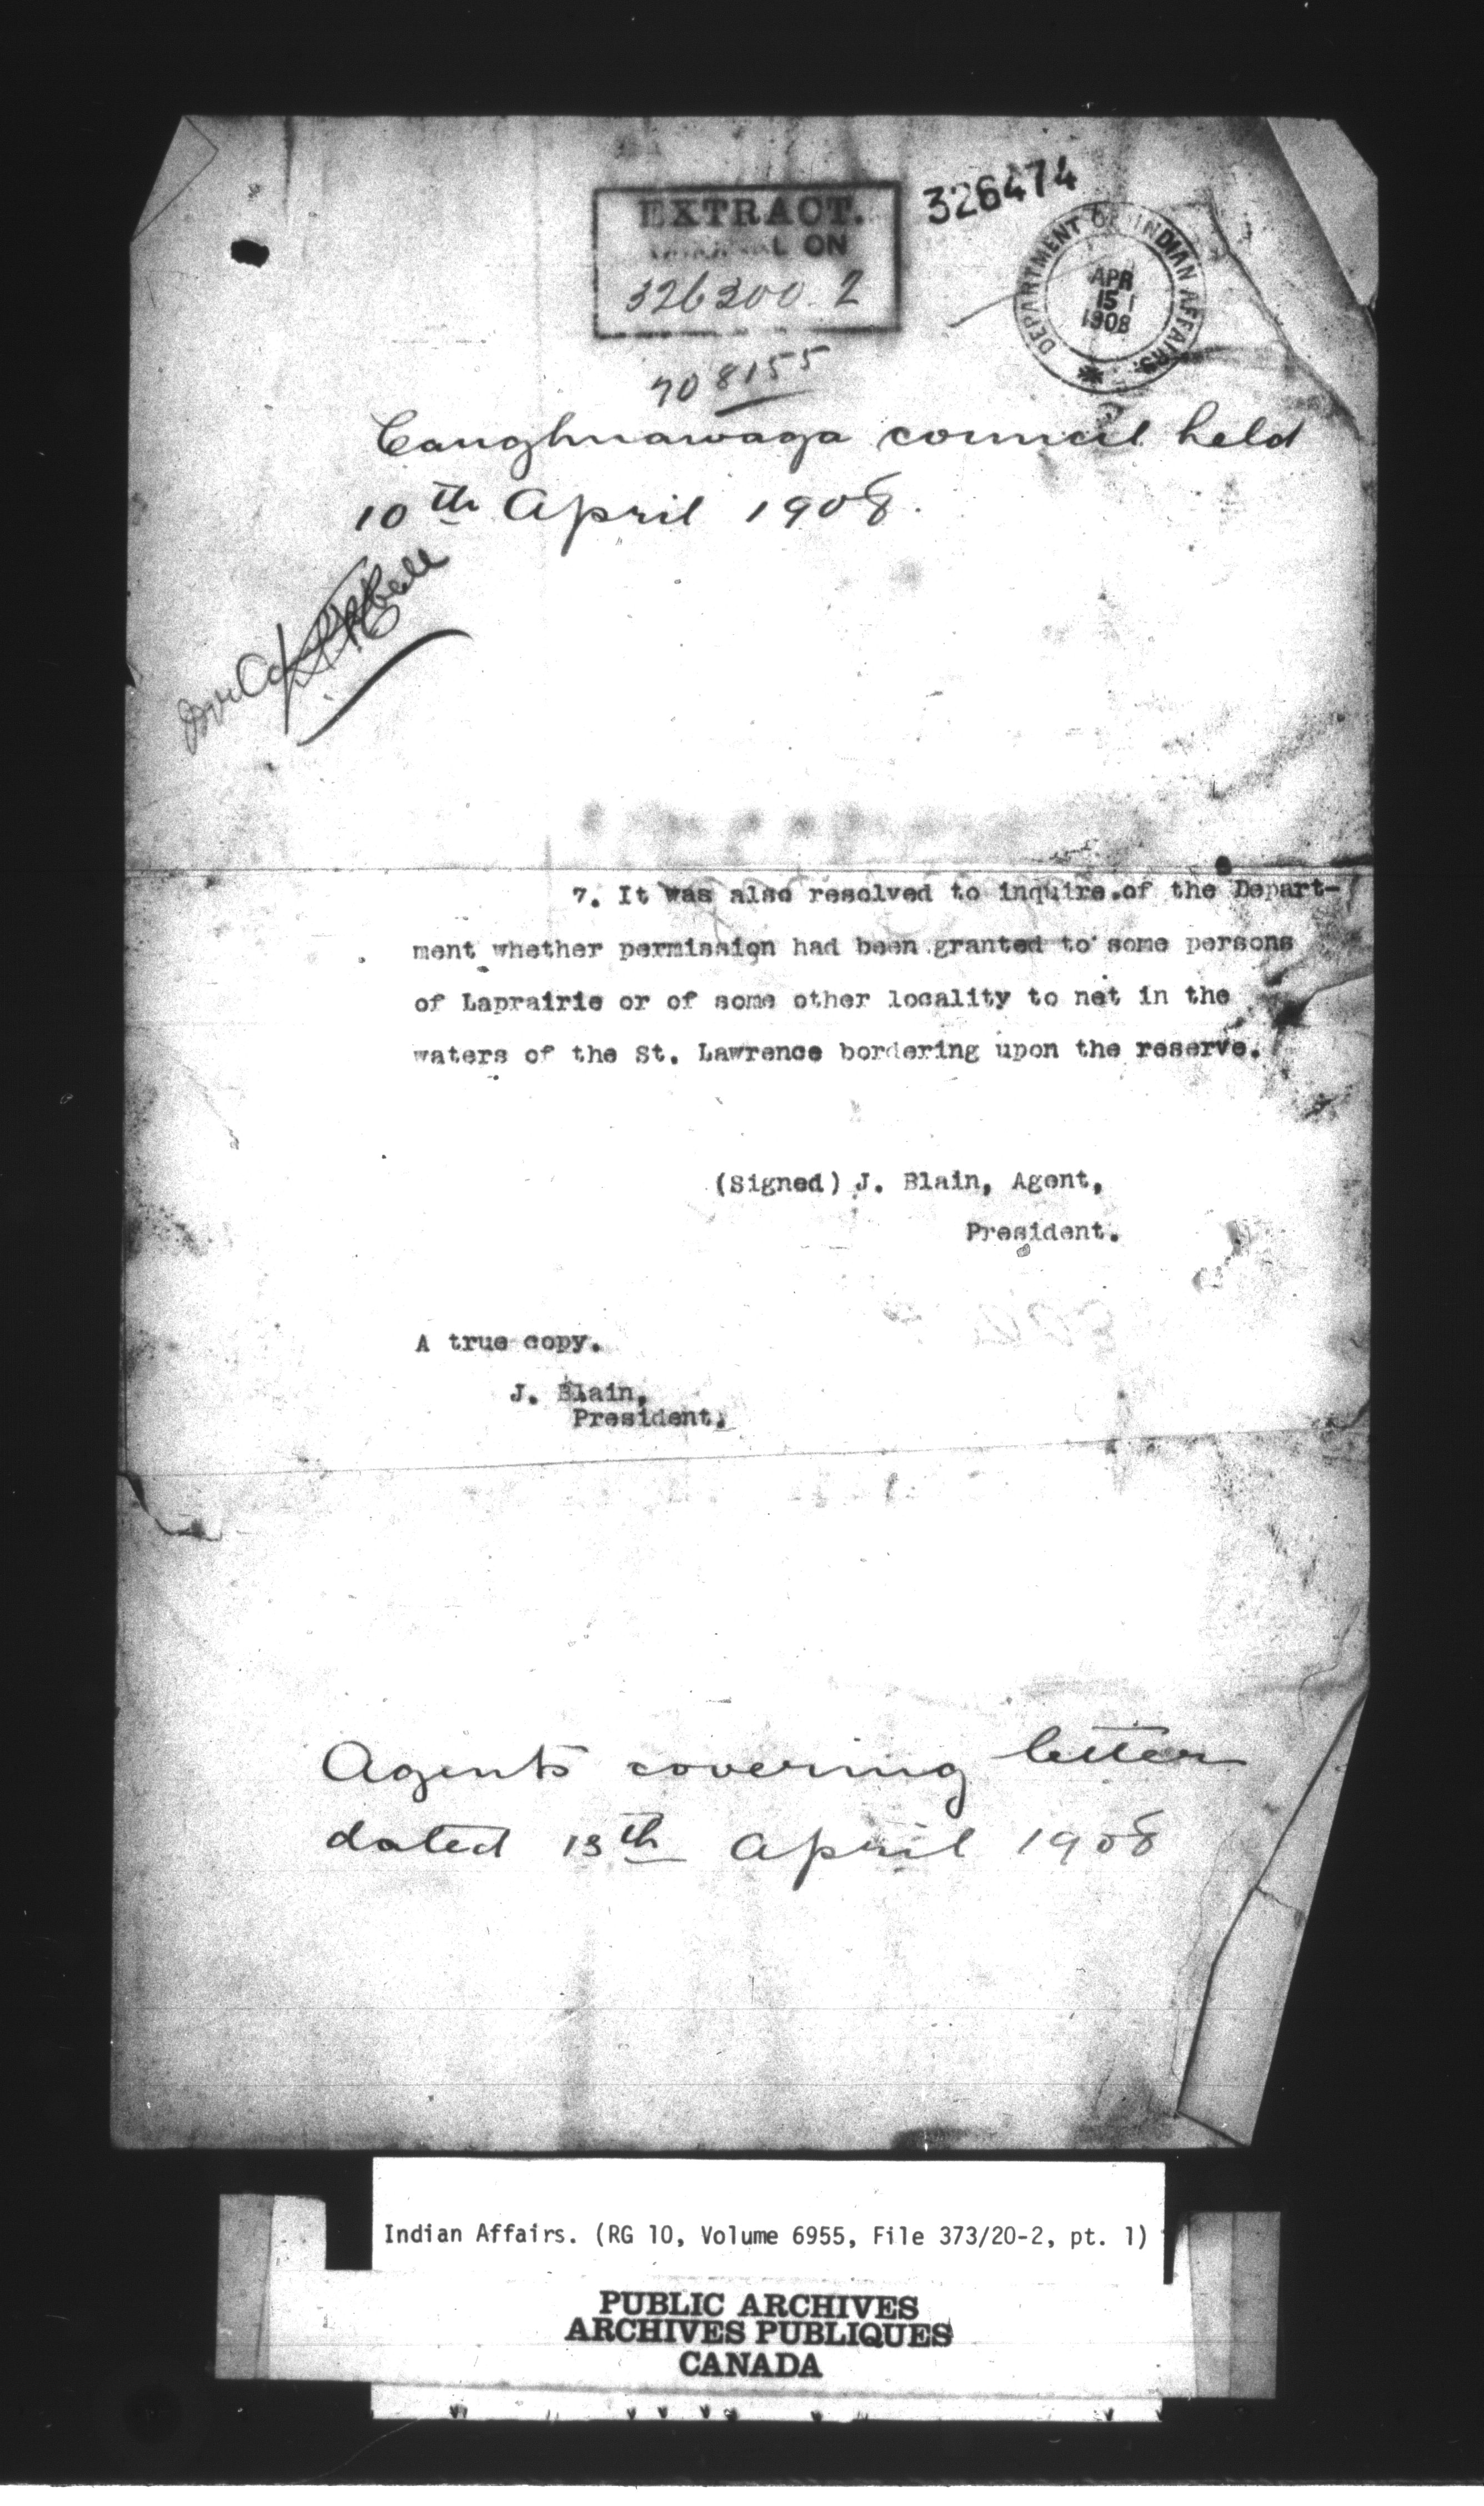 EXTRACT.
ORIGINAL ON
326300-2
326474
DEPARTMENT OF INDIAN AFFAIRS.
APR
15
1908
708155
Caughnawaga council held
10th April 1908.
7. It was also resolved to inquire of the Depart-
ment whether permission had been granted to some persons
of Laprairie or of some other locality to net in the
waters of the St. Lawrence bordering upon the reserve.
(Signed) J. Blain, Agent,
President.
A true copy.
J. Blain,
President.
Agents covering letter
dated 13th April 1908
Indian Affairs. (RG 10, Volume 6955, File 373/20-2, pt. 1)
PUBLIC ARCHIVES
ARCHIVES PUBLIQUES
CANADA